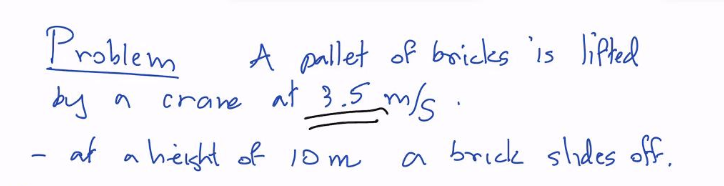 Problem A pallet of bricks is lifted
by a crane at 3.5 m/s.
- at a height of 10 m a brick slides off.